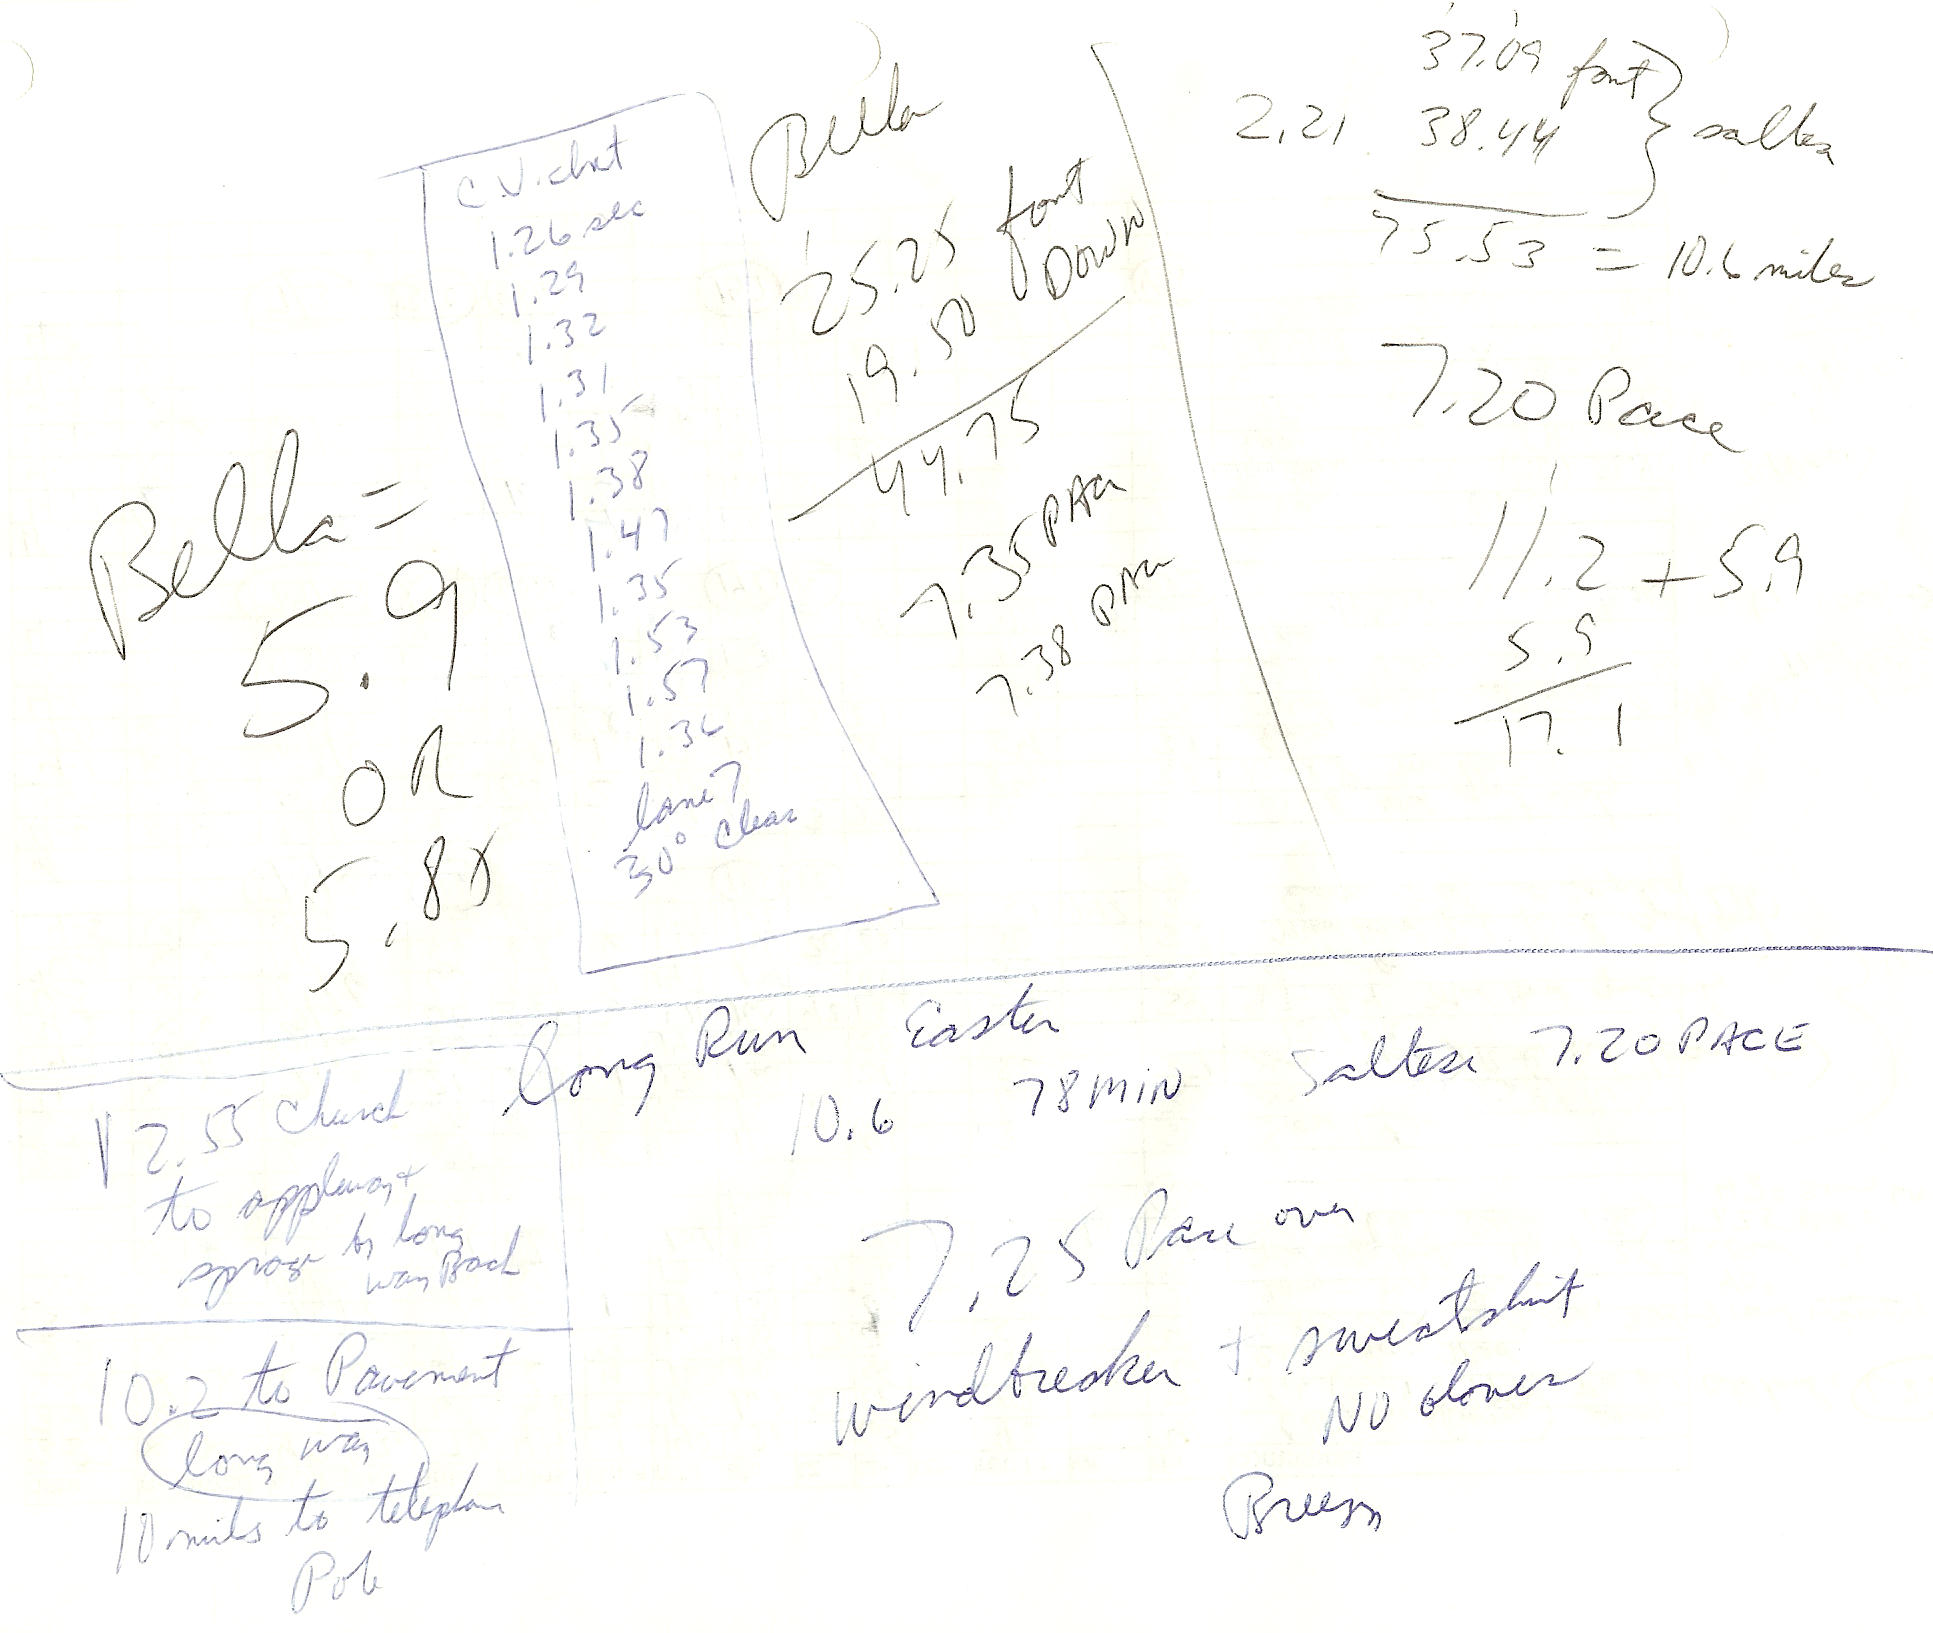 Bella =
5.9
OR
5.8
1.26 sec
1.29
1.32
1.31
1.35
1.38
1.47
1.35
1.53
1.57
1.36
lane 7
30° Clear
Bella
25.25
DOWN
19.50
44.75
7.35 PACE
7.38 PACE
37.09
2.21 38.44
75.53 = 10.6 miles
7.20 Pace
11.2 + 5.9
5.9
17.1
Long Run Easter
10.6 78 MIN Saltese 7.20 PACE
7.25 Pace over
windbreaker + sweatshirt
NO gloves
Breezy
12.55 Church
to appleway +
long
way Back
10.2 to Pavement
long way
10 miles to telephone
Pole